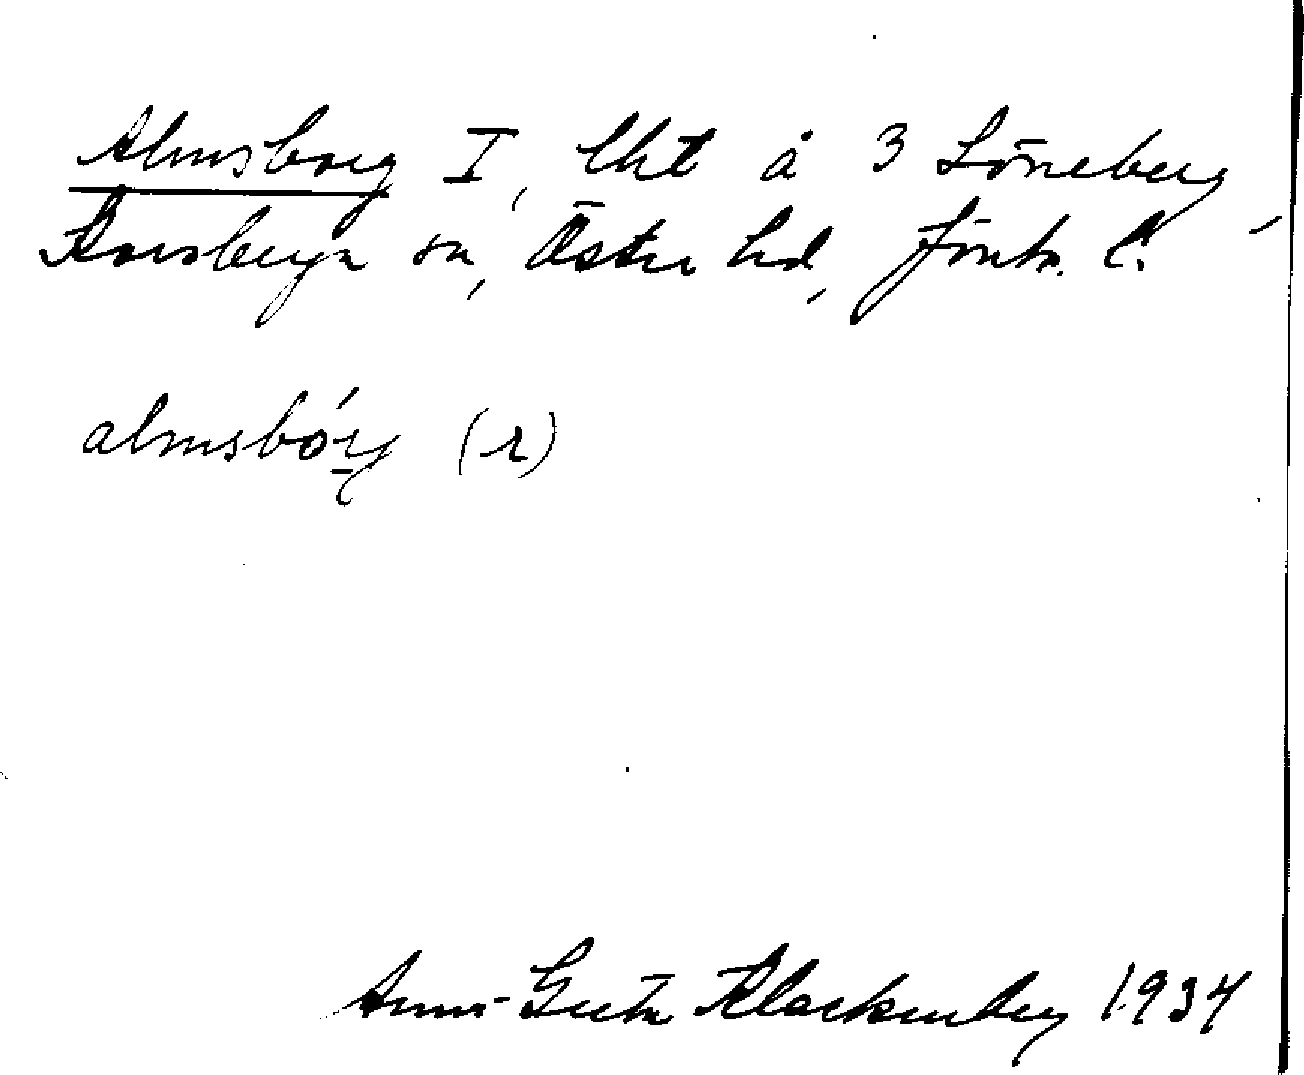 Almsborg I, lht å 3 Löneberg,
Korsberga sn, Östra hd, Jönk. l.
almsbórj (r)
Anna-Greta Klackenberg 1934